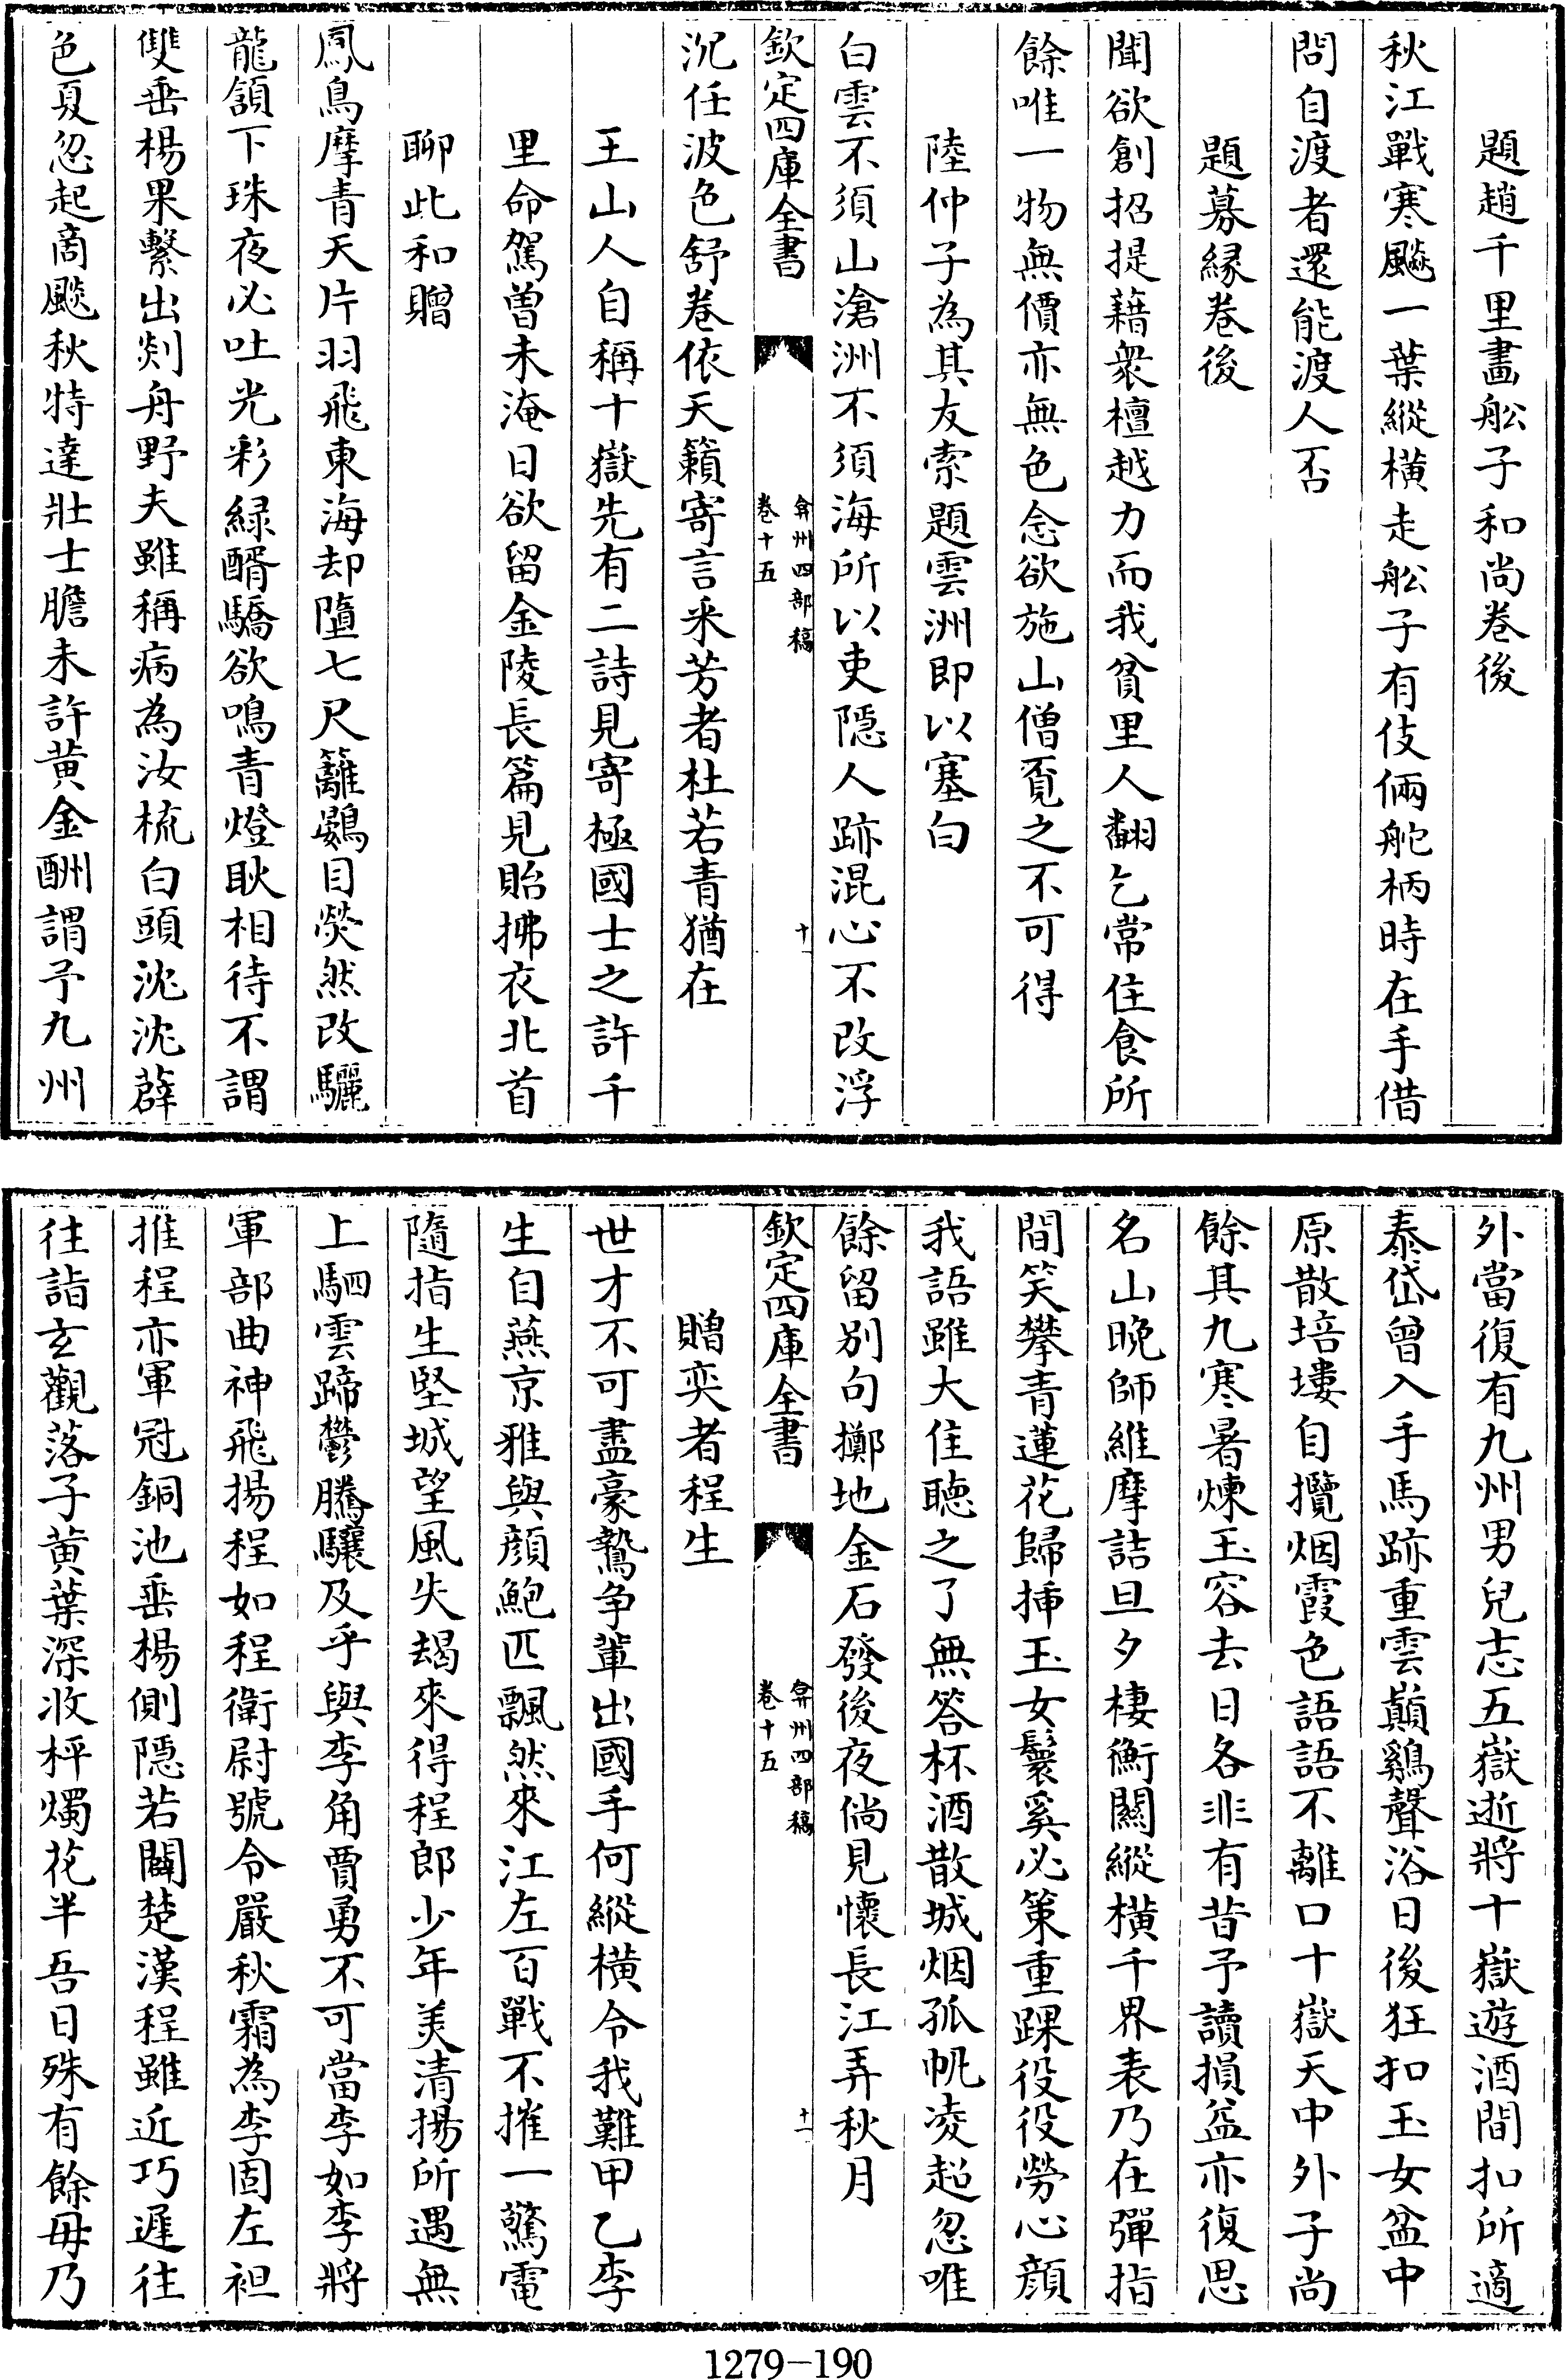 題趙千里畫舩子和尚卷後
秋江戰寒飈一葉縱橫走舩子有伎倆舵柄時在手借
問自渡者還能渡人否
題募縁卷後
聞欲創招提藉衆檀越力而我貧里人翻乞常住食所
餘唯一物無價亦無色念欲施山僧覔之不可得
陸仲子為其友索題雲洲即以塞白
白雲不須山滄洲不須海所以吏隠人跡混心不改浮
欽定四庫全書
弇州四部稿
卷十五
十
沉任波色舒卷依天籟寄言采芳者杜若青猶在
王山人自稱十嶽先有二詩見寄極國士之許千
里命駕曽未淹日欲留金陵長篇見貽拂衣北首
聊此和贈
鳳鳥摩青天片羽飛東海却墮七尺籬鷃目熒然改驪
龍頷下珠夜必吐光彩緑醑驕欲鳴青燈耿相待不謂
雙垂楊果繫出剡舟野夫雖稱病為汝梳白頭沈沈薜
色夏忽起商飈秋特達壯士膽未許黄金酬謂予九州
外當復有九州男兒志五嶽逝將十嶽遊酒間扣所適
泰岱曾入手馬跡重雲巔鷄聲浴日後狂扣玉女盆中
原散培塿自攬烟霞色語語不離口十嶽天中外子尚
餘其九寒暑煉玉容去日各非有昔予讀損益亦復思
名山晚師維摩詰旦夕棲衡關縱橫千界表乃在彈指
間笑攀青蓮花歸揷玉女鬟奚必策重踝役役勞心顔
我語雖大住聴之了無答杯酒散城烟孤帆凌超忽唯
餘留别句擲地金石發後夜倘見懐長江弄秋月
欽定四庫全書
弇州四部稿
卷十五
十一
贈奕者程生
世才不可盡豪鷙争軰出國手何縱橫令我難甲乙李
生自燕京雅與顔鮑匹飄然來江左百戰不摧一驚電
隨指生堅城望風失朅來得程郎少年美清揚所遇無
上駟雲蹄鬱騰驤及乎與李角賈勇不可當李如李將
軍部曲神飛揚程如程衛尉號令嚴秋霜為李固左袒
推程亦軍冠銅池垂楊側隠若闘楚漢程雖近巧遲往
往詣玄觀落子黄葉深收枰燭花半吾日殊有餘毋乃
1279-190